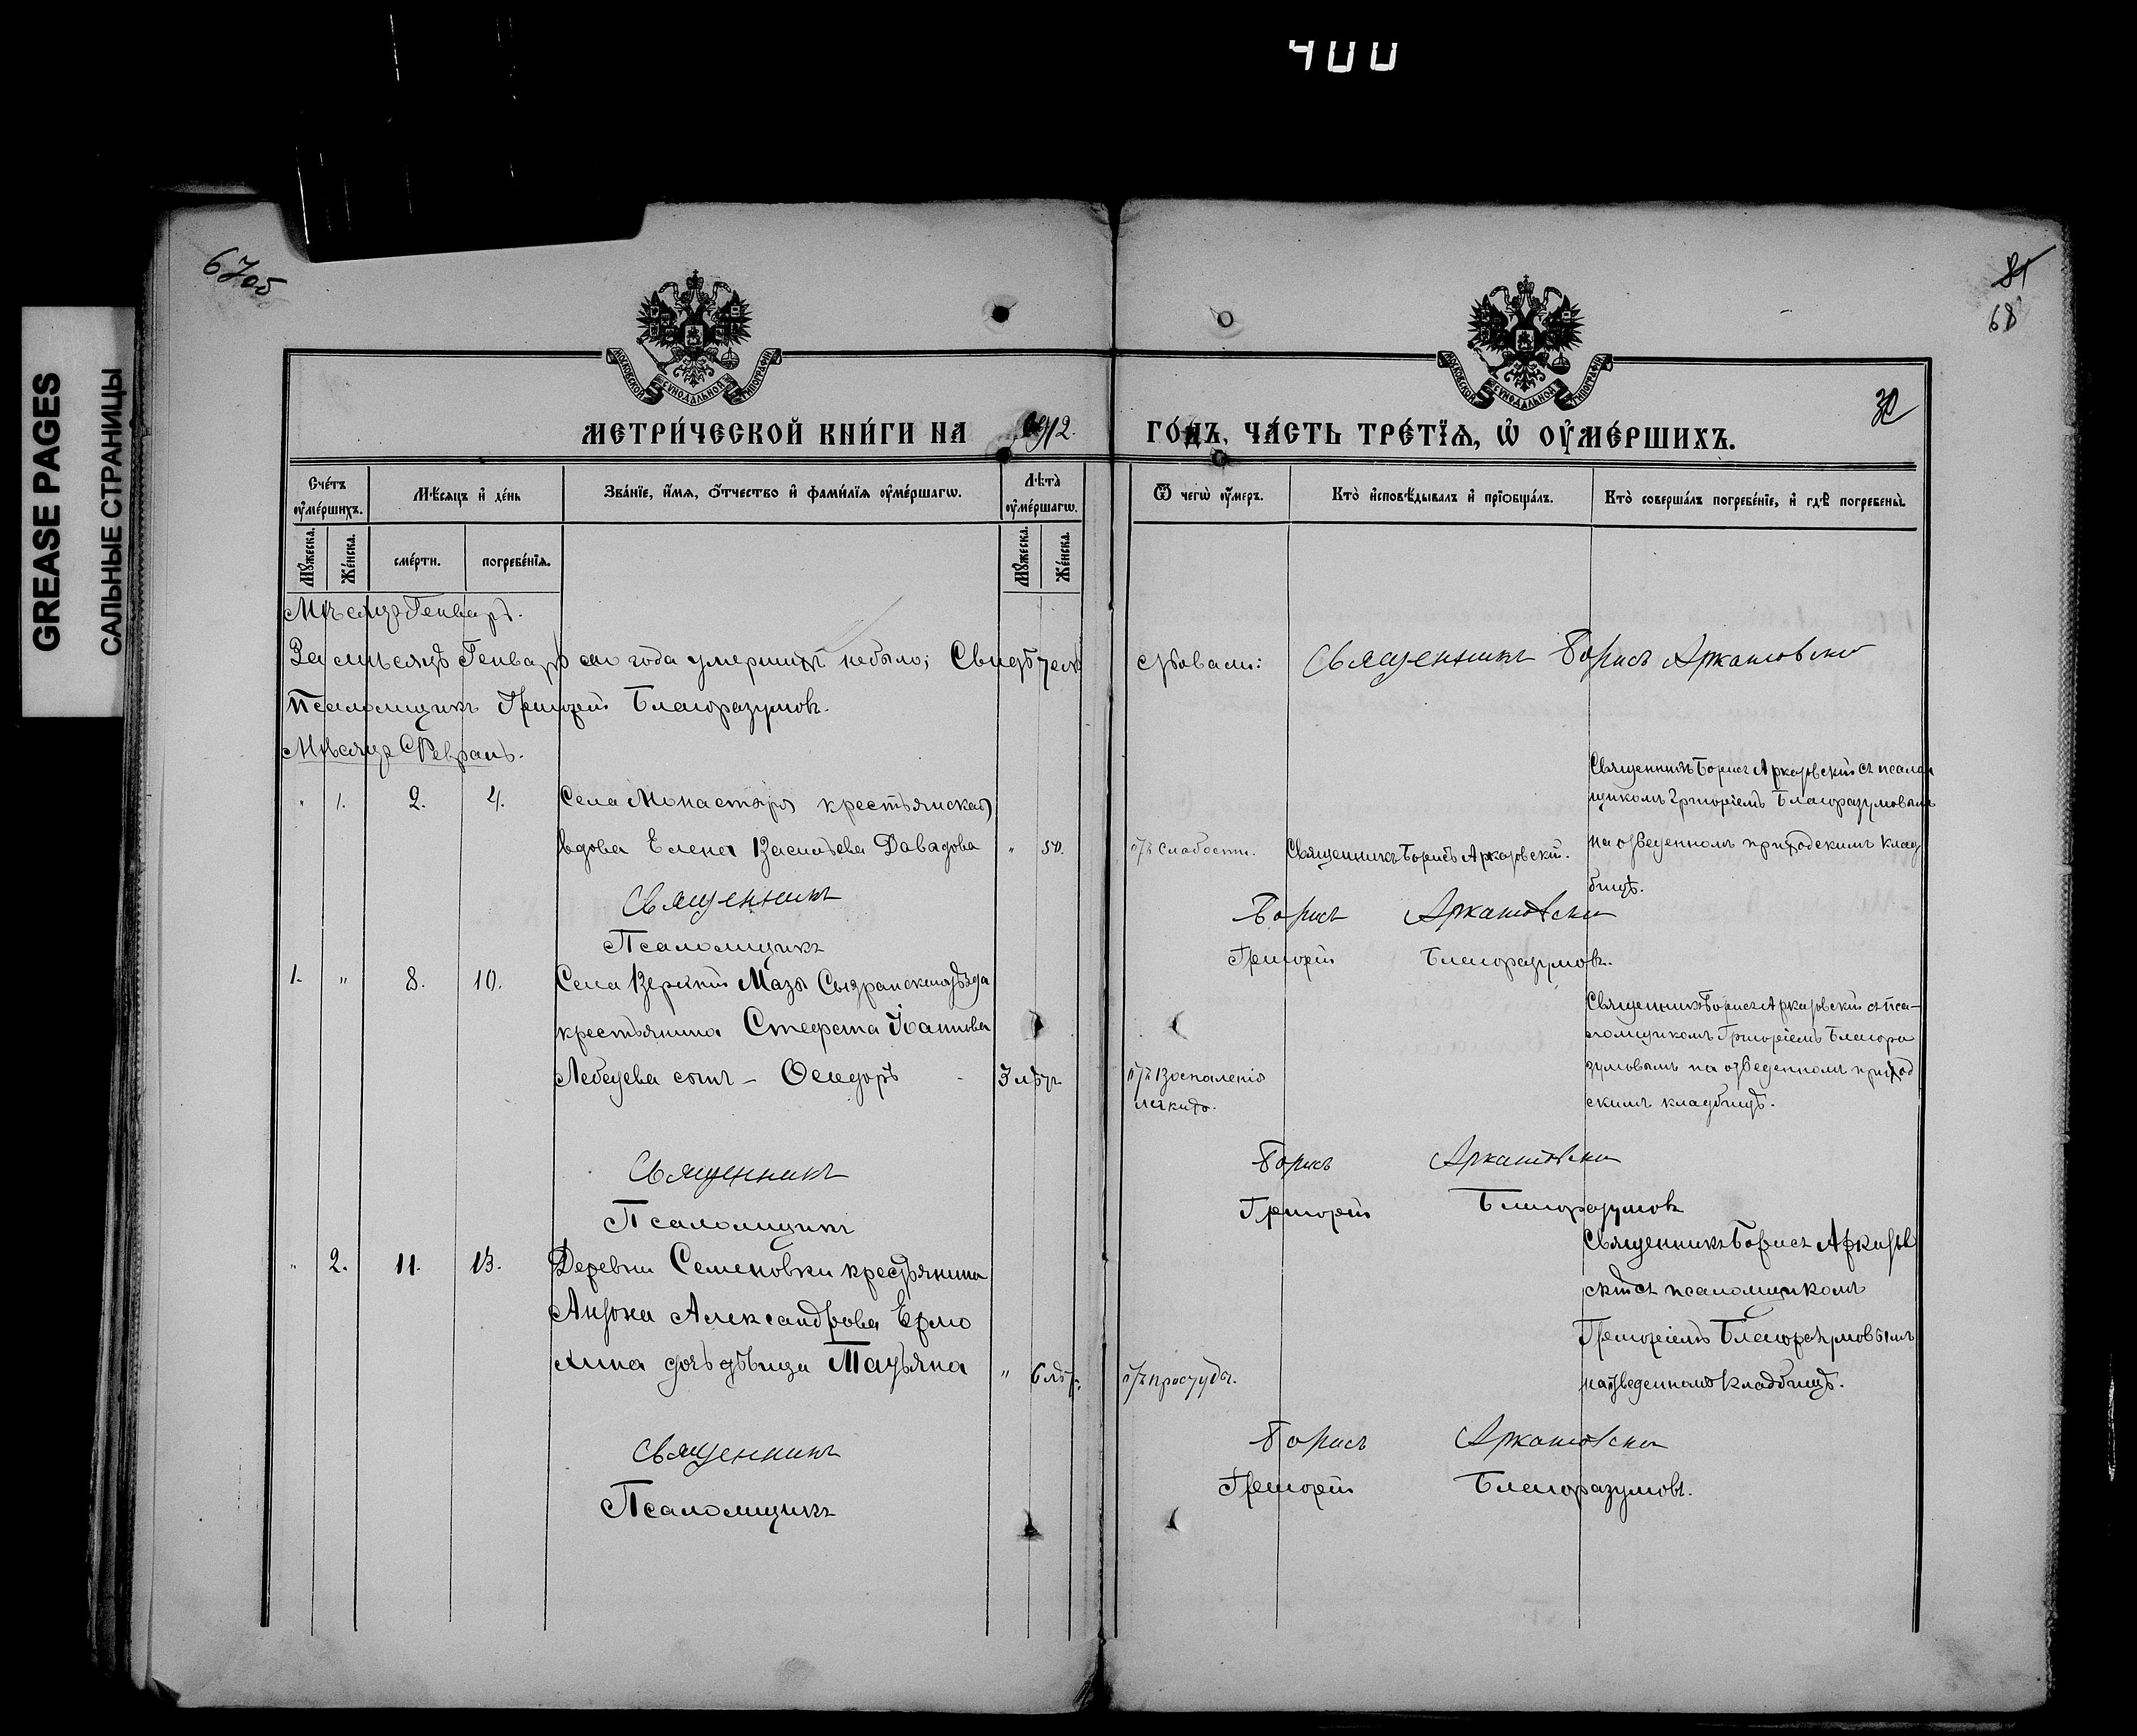 400
GREASE PAGES
САЛЬНЫЕ СТРАНИЦЫ
67об
81
68
32
МОСКОВСКОЙ СѴНОДАЛЬНОЙ ТИПОГРАФІИ
МОСКОВСКОЙ СѴНОДАЛЬНОЙ ТИПОГРАФІИ
МЕТРИ́ЧЕСКОЙ КНИ́ГИ НА 1912. ГО́ДЪ, ЧА́СТЬ ТРЕ́ТЇѦ, Ѡ҆ ОУ҆МЕ́РШИХЪ.
Сче́тъ оу҆ме́ршихъ.
Мѣ́сѧцъ и҆ де́нь
Зва́нїе, и҆́мѧ, о҆́тчество и҆ фами́лїѧ оу҆ме́ршагѡ.
Лѣ́та̀ оу҆ме́ршагѡ.
Ѿ чегѡ̀ оу҆́меръ.
Кто̀ и҆сповѣ́дывалъ и҆ прїѻбща́лъ.
Кто̀ соверша́лъ погребе́нїе, и҆ гдѣ̀ погребены̀.
Мꙋ́жеска.
Же́нска.
сме́рти.
погребе́нїѧ.
Мꙋ́жеска.
Же́нска.
Мѣсяцъ Генварь.
За мѣсяцъ Генварь сего года умершихъ небыло; Свидѣтель
ствовали: Священникъ Борисъ Аркатовскій
Псаломщикъ Григорій Благоразумовъ.
Мѣсяцъ Февраль.
" 1. 2. 4. Села Монастыря крестьянская
вдова Елена Васильева Давыдова " 50.
отъ слабости.
Священникъ Борисъ Аркатовскій.
Священникъ Борисъ Аркатовскій съ псалом
щикомъ Григоріемъ Благоразумовымъ
на отведенномъ приходскимъ клад
бищѣ.
Священникъ Борисъ Аркатовскій
Псаломщикъ Григорій Благоразумовъ.
1. " 8. 10. Села Верхній Мазы Сызранскаго уѣзда
крестьянина Стефана Іоаннова
Лебедева сынъ - Ѳеодоръ - 3 лѣтъ
отъ воспаленія
легкихъ.
Священникъ Борисъ Аркатовскій съ пса-
ломщикомъ Григоріемъ Благора
зумовымъ на отведенномъ приход
скимъ кладбищѣ.
Священникъ Борисъ Аркатовскій
Псаломщикъ Григорій Благоразумовъ
" 2. 11. 13. Деревни Семеновки крестьянина
Антона Александрова Ермо
хина дочь дѣвица Татьяна " 6 лѣтъ.
отъ простуды.
Священникъ Борисъ Аркатов
скій съ псаломщикомъ
Григоріемъ Благоразумовымъ
на отведенномъ кладбищѣ.
Священникъ Борисъ Аркатовскій
Псаломщикъ Григорій Благоразумовъ.